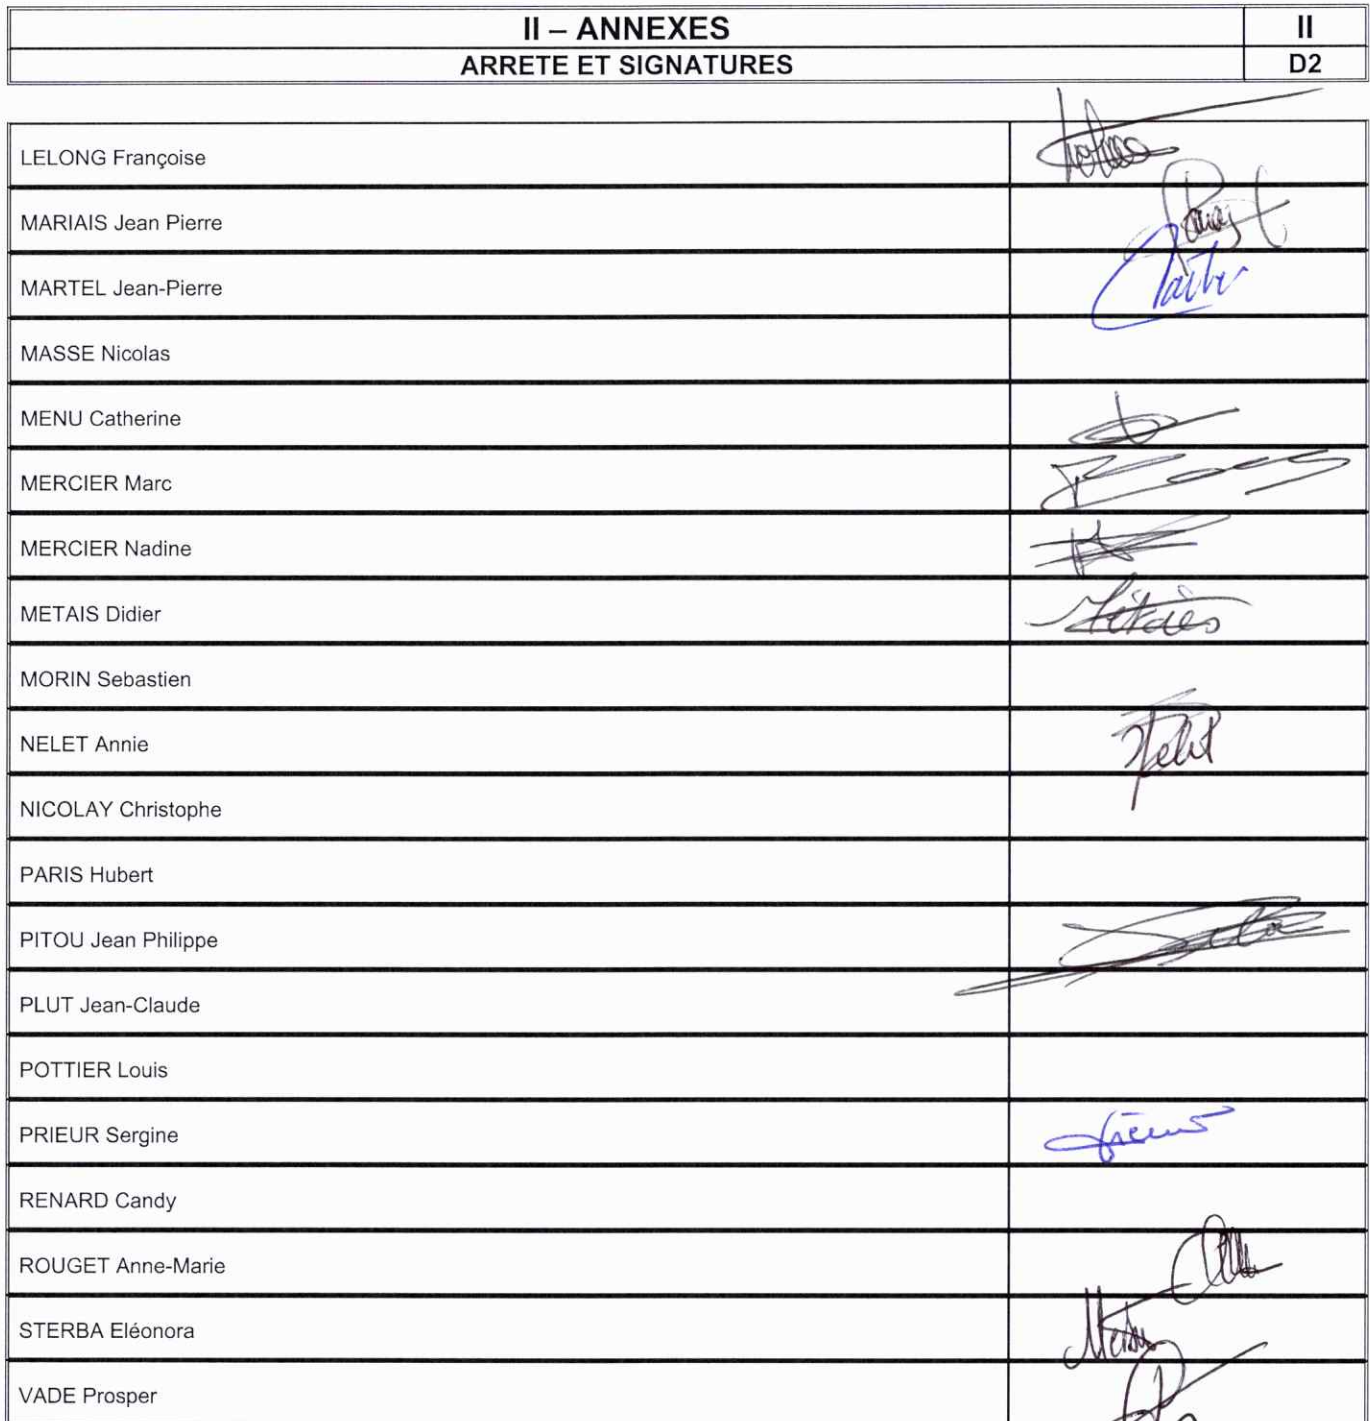 II – ANNEXES
II
ARRETE ET SIGNATURES
D2
LELONG Françoise
MARIAIS Jean Pierre
MARTEL Jean-Pierre
MASSE Nicolas
MENU Catherine
MERCIER Marc
MERCIER Nadine
METAIS Didier
MORIN Sebastien
NELET Annie
NICOLAY Christophe
PARIS Hubert
PITOU Jean Philippe
PLUT Jean-Claude
POTTIER Louis
PRIEUR Sergine
RENARD Candy
ROUGET Anne-Marie
STERBA Eléonora
VADE Prosper